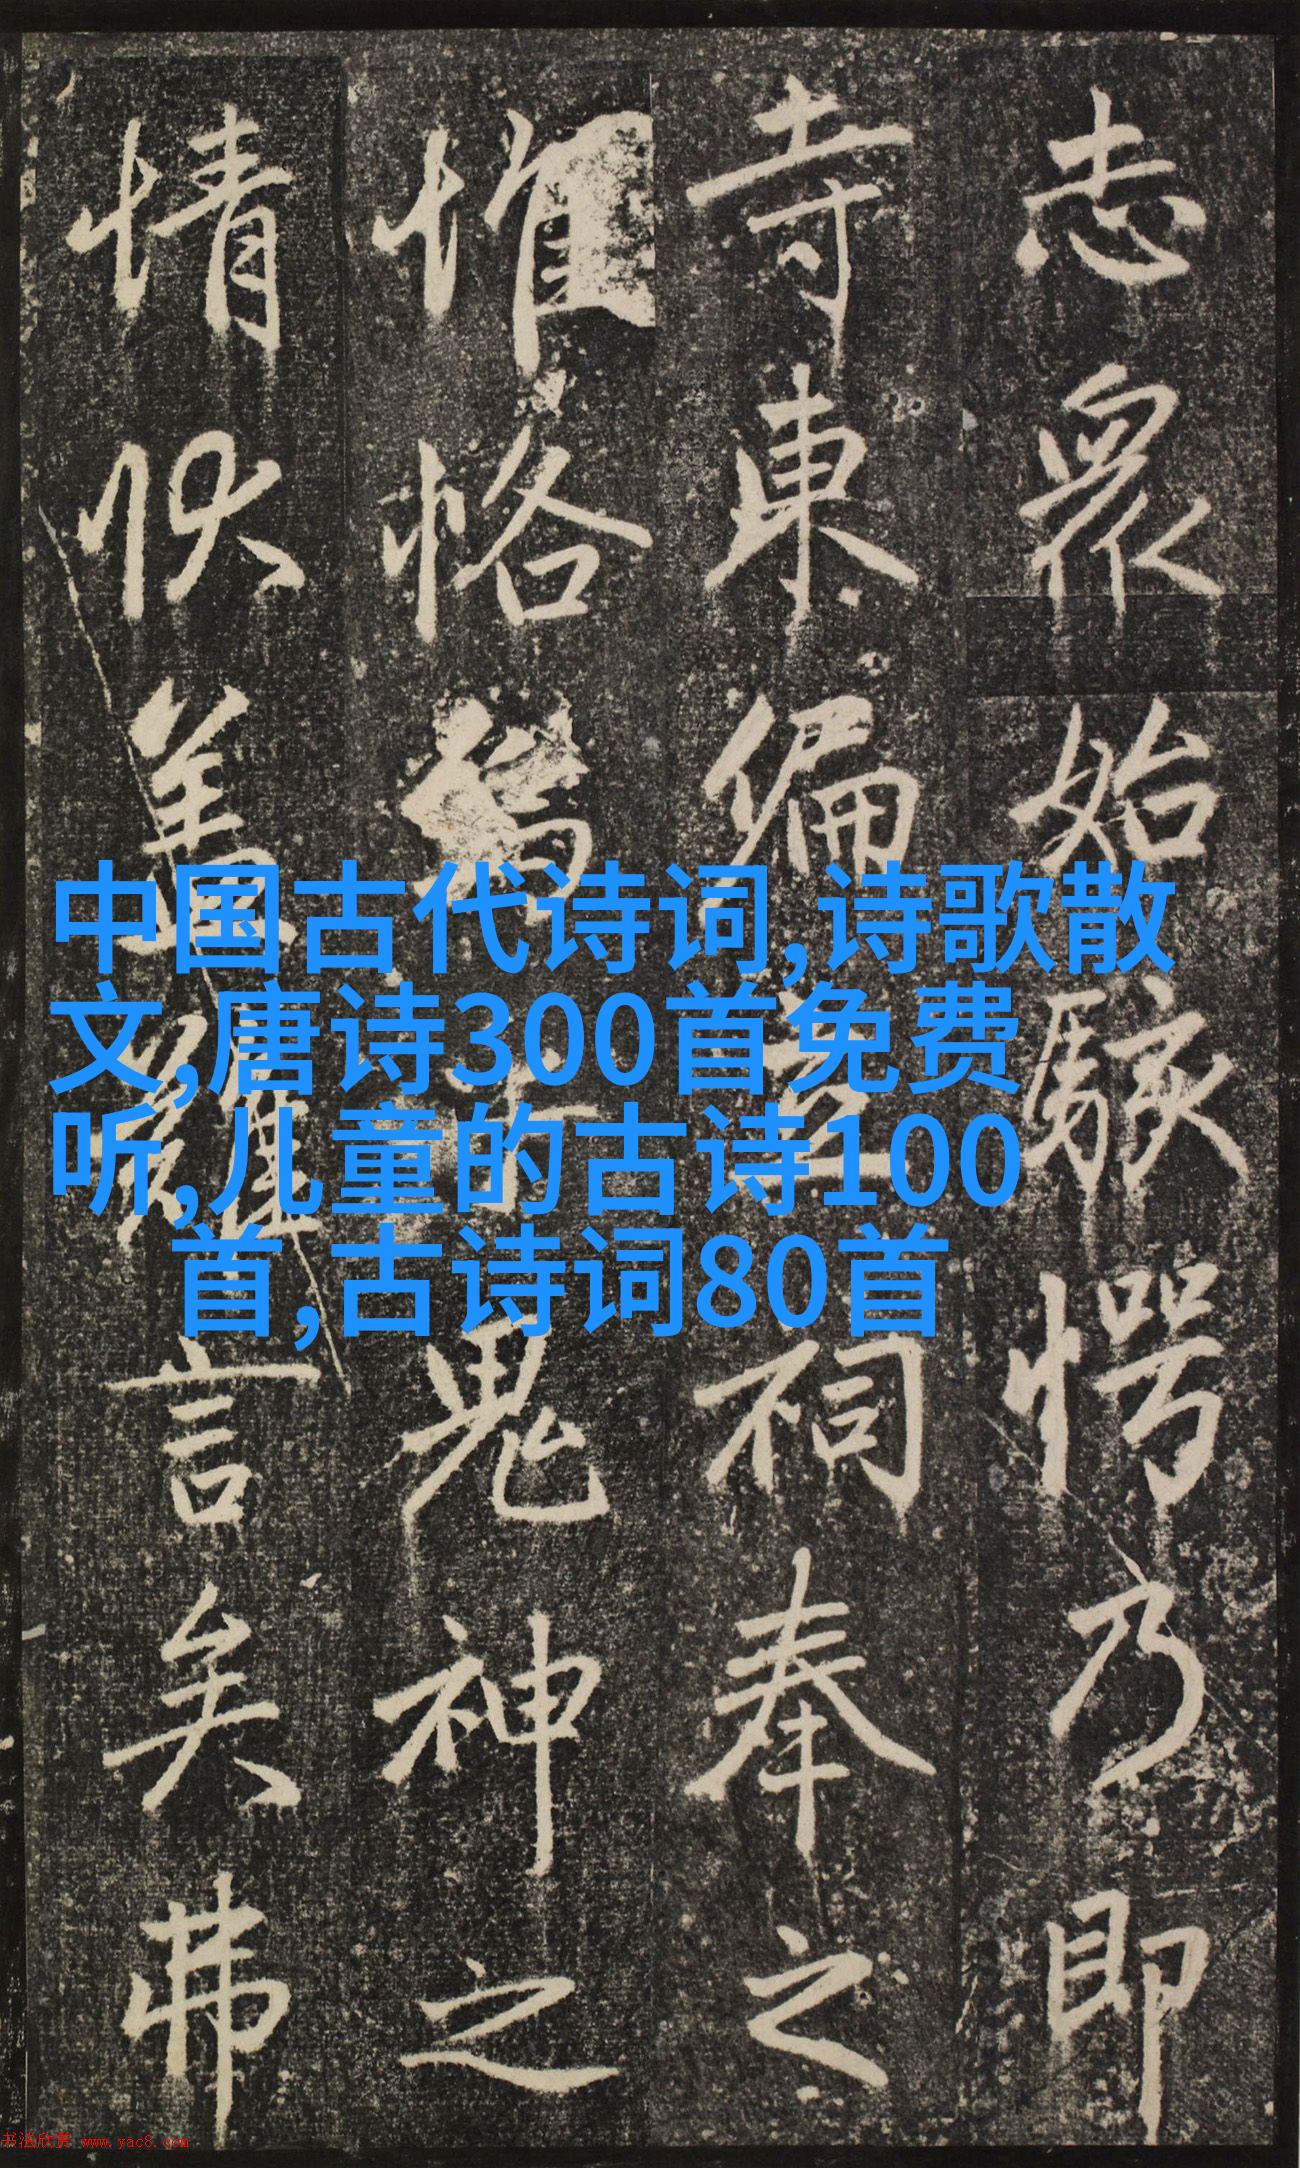 志眾始駭愕乃即
寺東偏立祠奉之
惟恪爲鬼神之
情狀蓋難言矣弗
中国古代诗词,诗歌散
文,唐诗300首免费
听,儿童的古诗100
首,古诗词80首
书法欣赏 www.yac8.com